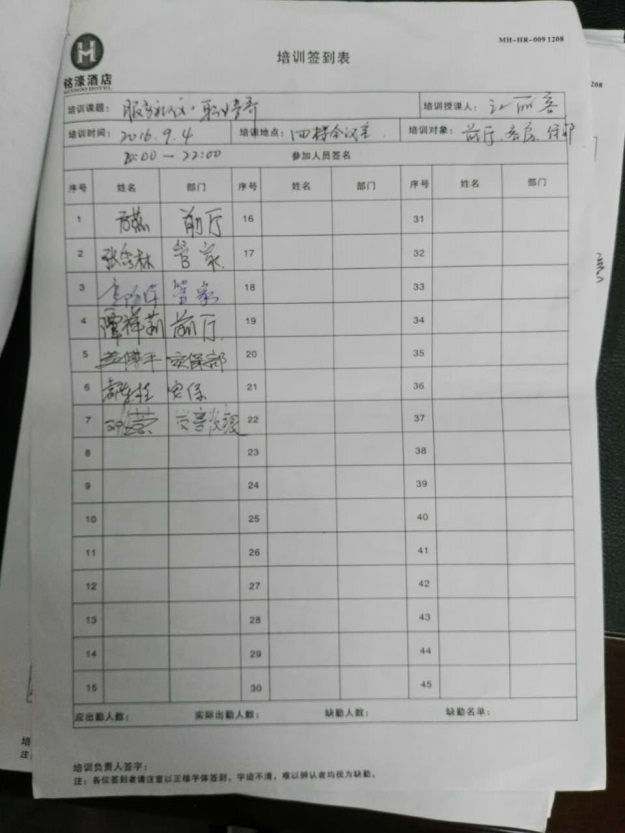 MH-HR-009 1208
铭濠酒店
培训签到表
培训课题： 服务礼仪·职业 培训授课人： 江丽
培训时间： 2016.9.4 培训地点： 四楼会议室 培训对象： 前厅、客房、
20:00 — 22:00 参加人员签名
序号 姓名 部门 序号 姓名 部门 序号 姓名 部门
1 前厅 16 31
2 张 林 管家 17 32
3 管家 18 33
4 谭祥莉 前厅 19 34
5 平 安保部 20 35
6 安保 21 36
7 22 37
8 23 38
9 24 39
10 25 40
11 26 41
12 27 42
13 28 43
14 29 44
15 30 45
应出勤人数： 实际出勤人数： 缺勤人数： 缺勤名单：
培训负责人签字：
注：各位签到者请注意以正楷字体签到，字迹不清，难以辨认者均视为缺勤。